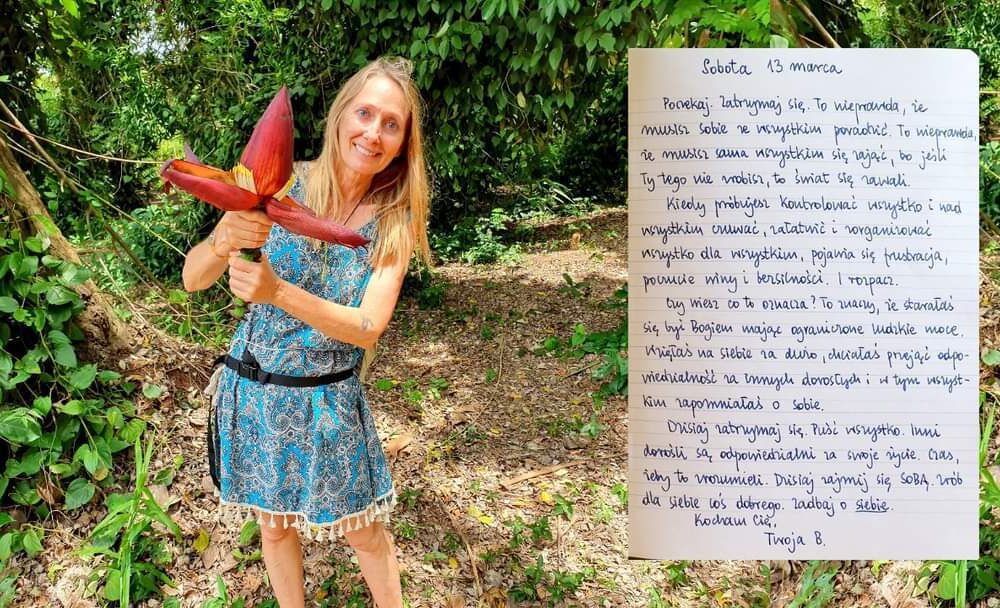 Sobota 13 marca
Poczekaj. Zatrzymaj się. To nieprawda, że
musisz sobie ze wszystkim poradzić. To nieprawda,
że musisz sama wszystkim się zająć, bo jeśli
Ty tego nie zrobisz, to świat się zawali.
Kiedy próbujesz kontrolować wszystko i nad
wszystkim czuwać, załatwić i zorganizować
wszystko dla wszystkich, pojawia się frustracja,
poczucie winy i bezsilności. I rozpacz.
Czy wiesz co to oznacza? To znaczy, że starałaś
się być Bogiem mając ograniczone ludzkie moce.
Wzięłaś na siebie za dużo, chciałaś przejąć odpo-
wiedzialność za innych dorosłych i w tym wszyst-
kim zapomniałaś o sobie.
Dzisiaj zatrzymaj się. Puść wszystko. Inni
dorośli są odpowiedzialni za swoje życie. Czas,
żeby to zrozumieli. Dzisiaj zajmij się SOBĄ. Zrób
dla siebie coś dobrego. Zadbaj o siebie.
Kocham Cię,
Twoja B.